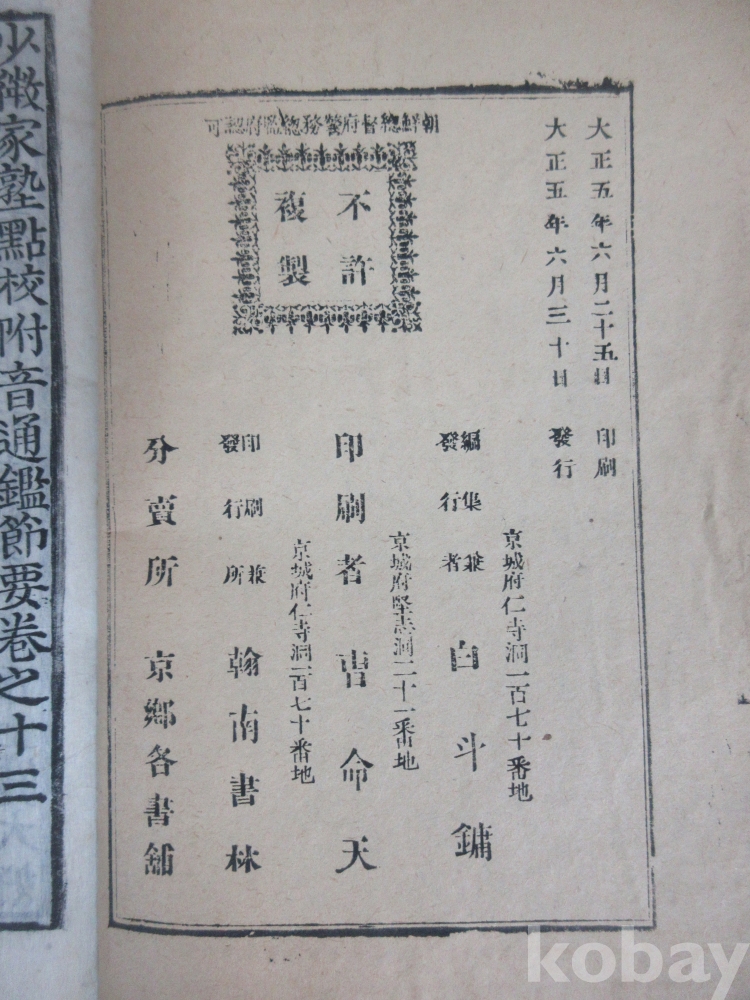 大正五年六月二十五日 印刷
大正五年六月三十日 發行
朝鮮總督府警務總監府認可
不許
複製
京城府仁寺洞一百七十番地
編集兼
發行者 白斗鏞
京城府堅志洞二十一番地
印刷者 曺命天
京城府仁寺洞一百七十番地
印刷兼
發行所 翰南書林
分賣所 京鄕各書舖
少微家塾點校附音通鑑節要卷之十三
kobay